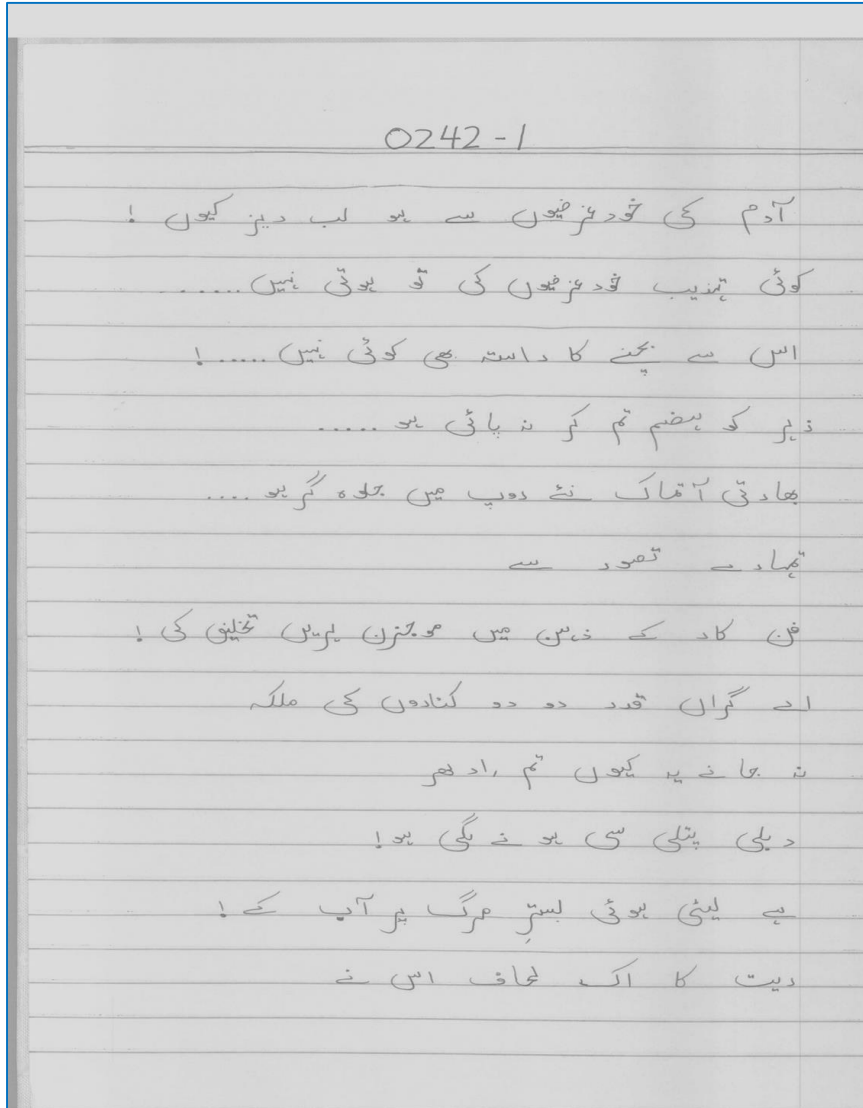 0242-1
آدم کی خودغرضیوں سے ہو لب ریز کیوں !
کوئی تہذیب خودغرضیوں کی تو ہوتی نہیں ......
اس سے بچنے کا راستہ بھی کوئی نہیں ..... !
زہر کو ہضم تم کر نہ پائی ہو .....
بھارتی آتماک نئے روپ میں جلوہ گر ہو ....
تمہارے تصور سے
فن کار کے ذہن میں موجزن لہریں تخلیق کی !
اے گراں قدر دو دو کناروں کی ملکہ
نہ جانے یہ کیوں تم ادھر
دبلی پتلی سی ہونے لگی ہو !
ہے لیٹی ہوئی بسترِ مرگ پر آپ کے !
ریت کا اک لحاف اس نے